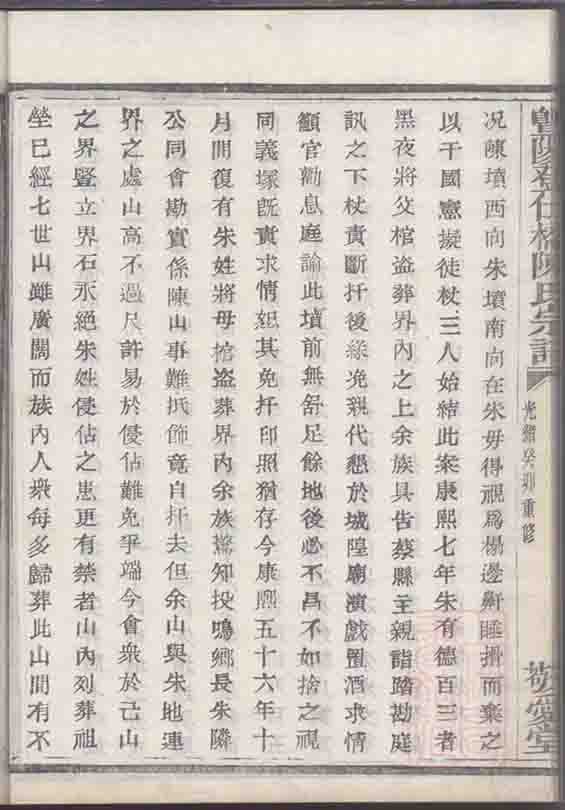 暨陽孝仁橋陳氏宗譜
光緒癸卯重修
敬愛堂
况陳墳西向朱墳南向在朱毋得視爲榻邊鼾睡搰而棄之
以干國憲擬徒杖三人始結此案康熙七年朱有德百三者
黑夜將父棺盗葬界內之上余族具告蔡縣主親詣踏勘庭
訊之下杖責斷扦後緣浼親代懇於城隍廟演戲置酒求情
顓官勸息庭諭此墳前無舒足餘地後必不昌不如捨之視
同義塚旣責求情恕其免扦印照猶存今康熙五十六年十
月間復有朱姓將母棺盗葬界內余族驚知投鳴鄉長朱隣
公同會勘實係陳山事難抵飾竟自扦去但余山與朱地連
界之處山高不過尺許易於侵佔難免爭端今會衆於己山
之界豎立界石永絕朱姓侵佔之患更有禁者山內列葬祖
塋已經七世山雖廣闊而族內人衆每多歸葬此山間有不